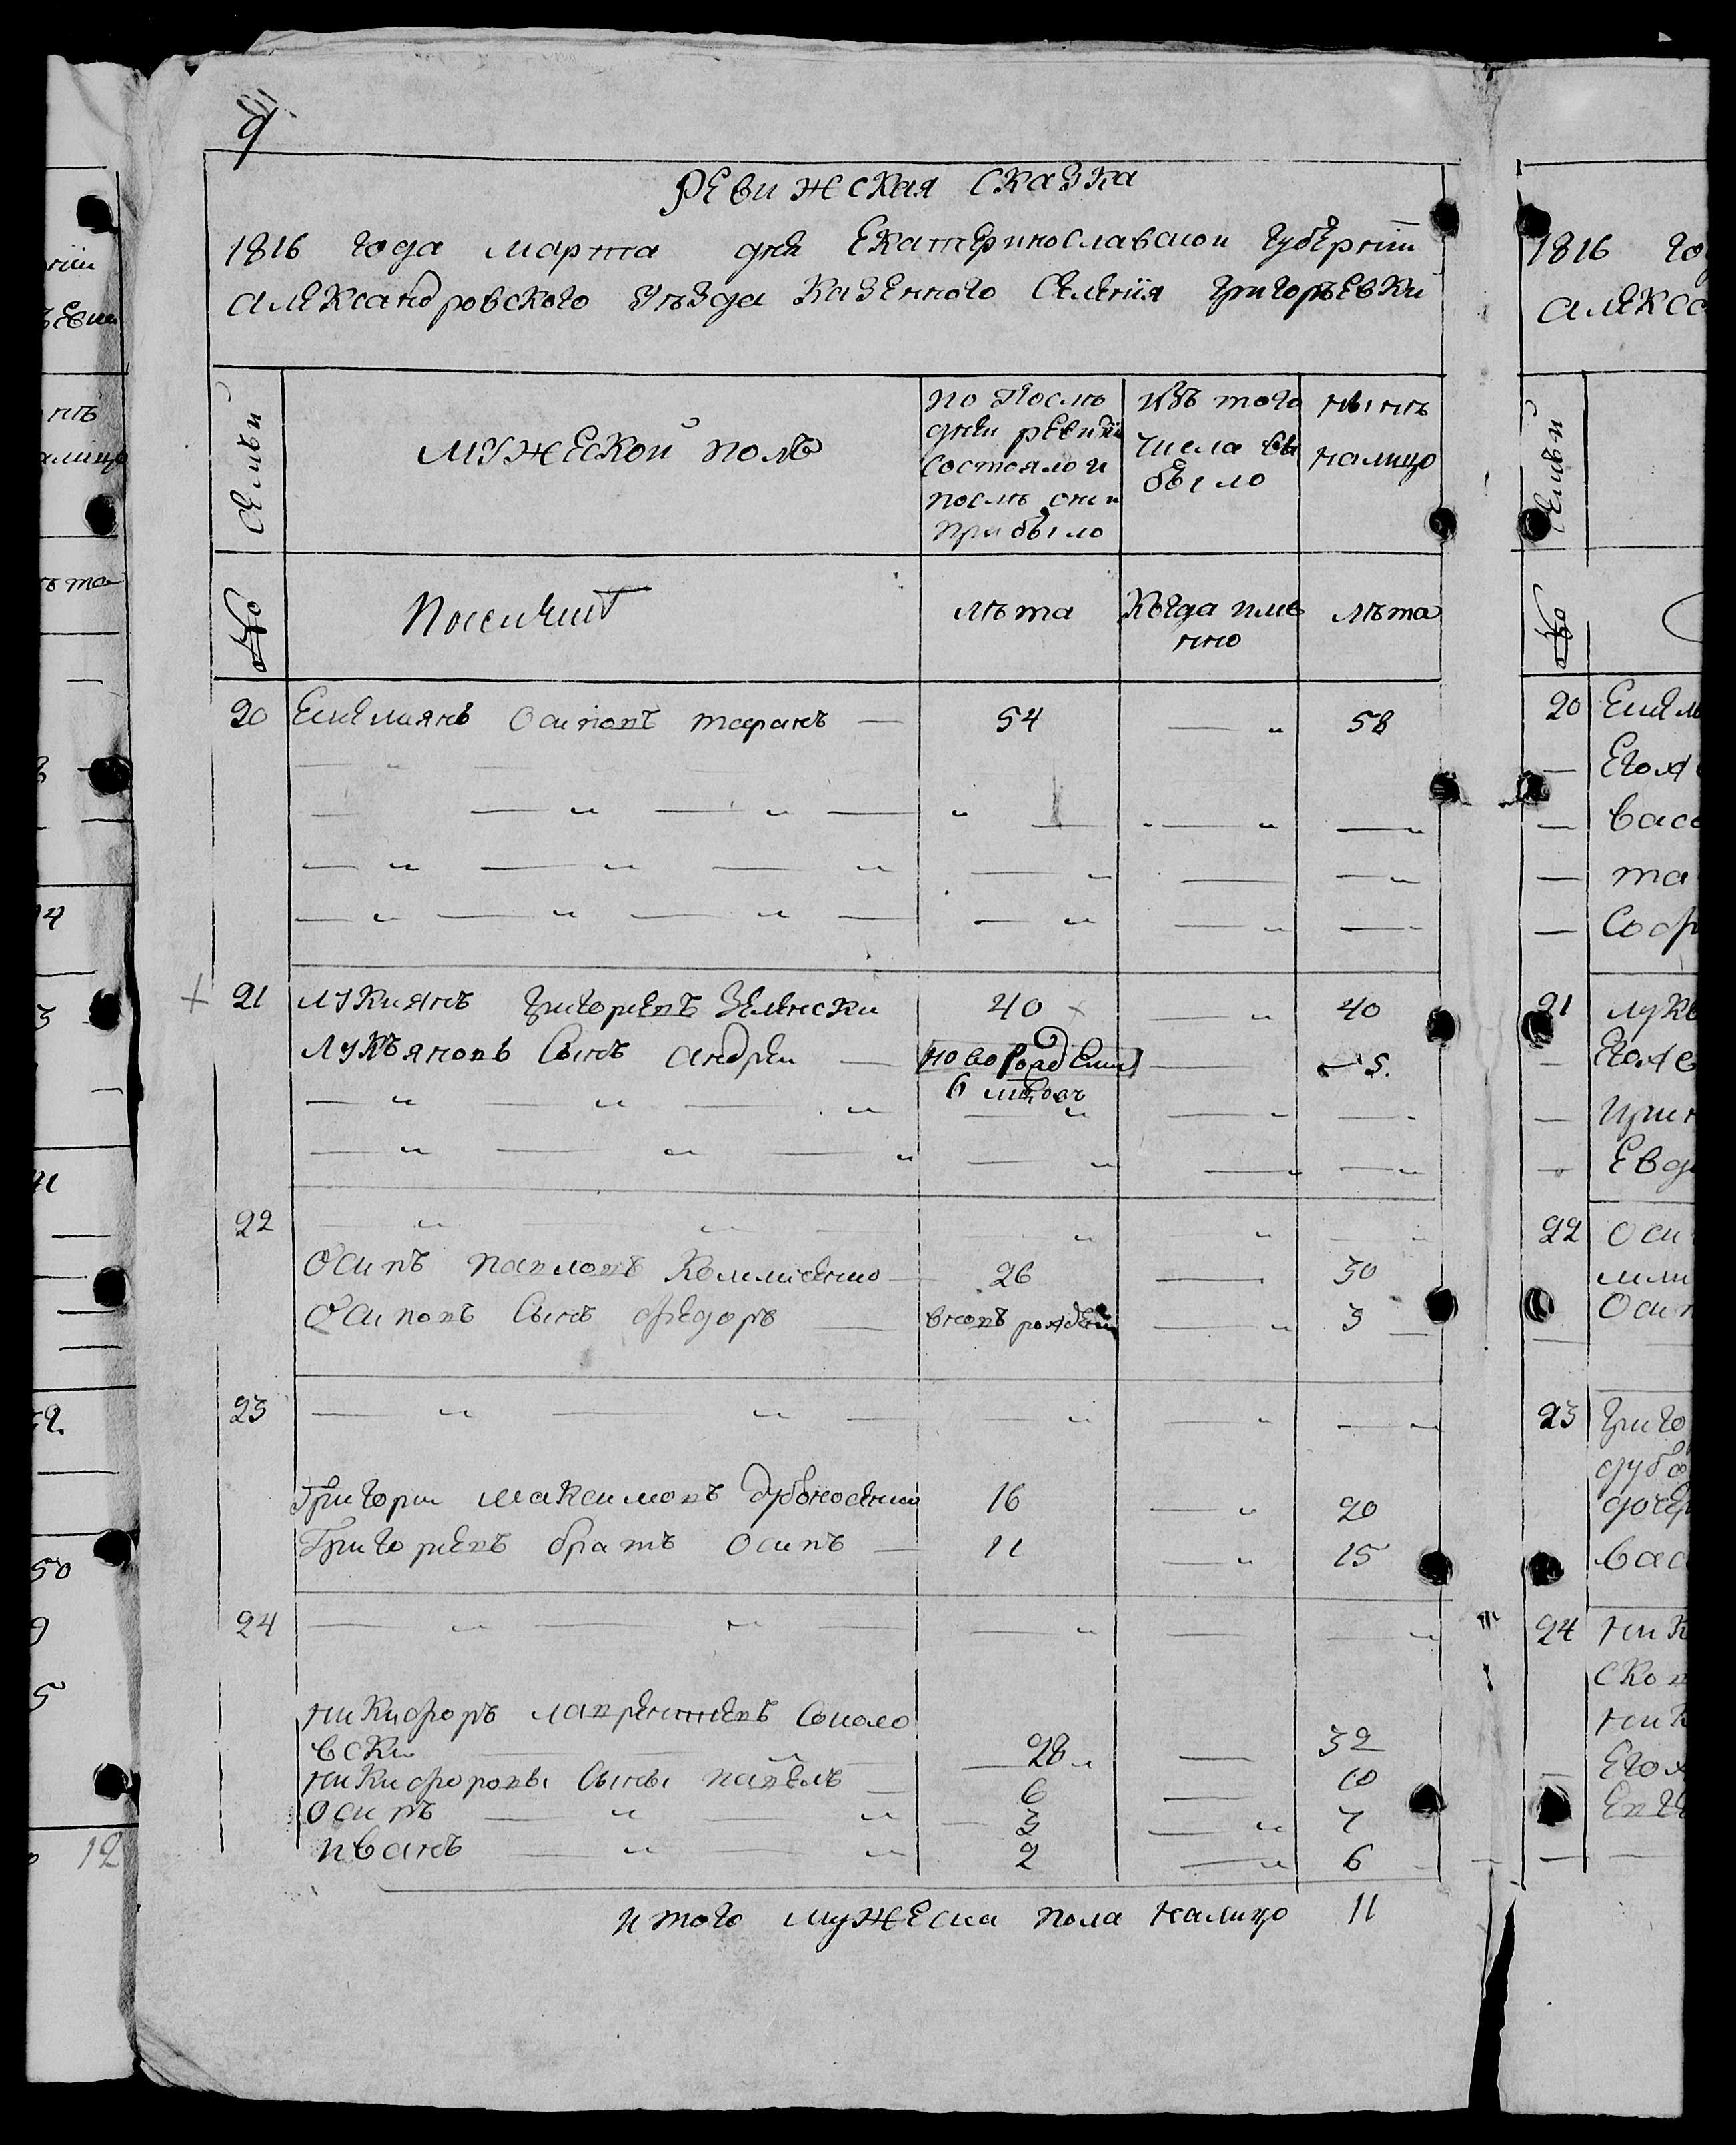 9
Ревижская сказка
1816 года марта дня Екатеринославской губернiи
александровского уѣзда казенного селенiя григорьевки
Семьи
Мужеской полъ
по послѣ
дней ревизiи
состояло и
послѣ оной
прибыло
изъ того
числа вы
было
нынѣ
налицо
№
лѣта
Когда имя
нно
лѣта
20 Емелиянъ Осиповъ таранъ — 54 — „ 58
21 лукиянъ григориевъ Зеленски 40 — „ 40
лукъяновъ Сынъ андреи — новорожденъ — 5.
22
Осипъ павловъ 26 — 30
Осиповъ Сынъ федоръ — вновь рожденъ — „ 3
23 — „ — „ — — „ — „ — „
Григори максимовъ 16 — „ 20
Григориевъ братъ Осипъ — 11 — „ 15
24 — „ — „ — — „ — — „
никифоръ лаврентиевъ Соколо
вски 28 „ — 32
никифоровы Сыны павелъ — 6 — 10
Осипъ — „ — „ 3 — „ 7
иванъ — „ — „ 2 — „ 6
итого мужеска пола налицо 11
1816 го
алекса
Семьи
№
20 Емел
Егож
васи
та
Соф
21 лукъ
Егож
Ирин
Евд
22 Оси
Осип
23 григо
дубо
дочер
вас
24 ник
ско
ник
Егож
Евг
12
50
9
5